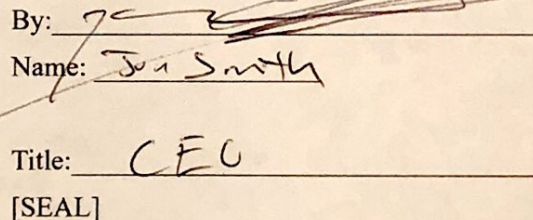 By:
Name: Jon Smith
Title: CEO
[SEAL]